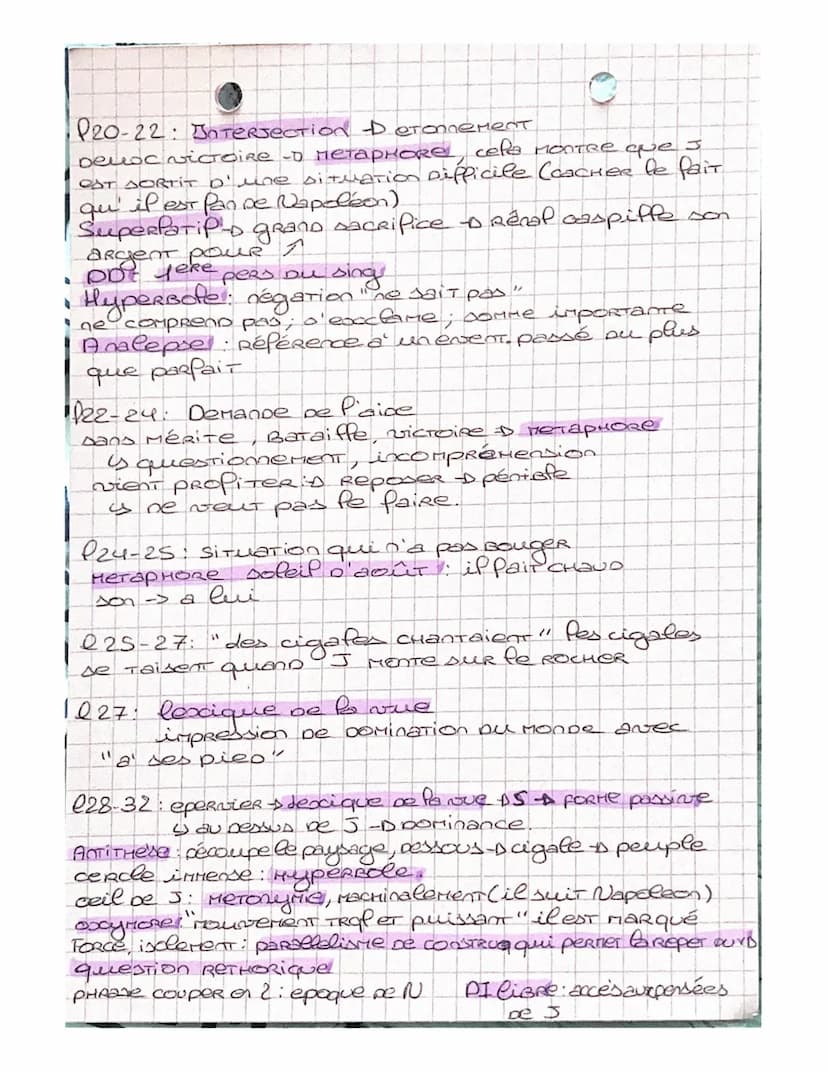 l20-22 : Intersection → etonnement
Deuoc victoire → metaphore, cela montre que J
est sortit d'une situation difficile (cacher le fait
qu'il est fan de Napoléon)
Superlatif → grand sacrifice → Rénal gaspille son
argent pour ↗
DD: 1ere pers du sing
Hyperbole : négation "ne sait pas"
ne comprend pas ; s'exclame ; somme importante
Analepse : référence à un évent. passé au plus
que parfait
l22-24 : Demande de l'aide
sans mérite, Bataille, victoire → metaphore
↳ questionnement, incompréhension
vient profiter → reposer → pénible
↳ ne veut pas le faire.
l24-25 : situation qui n'a pas bouger
metaphore soleil d'août : il fait chaud
son -> a lui
l25-27 : "des cigales chantaient" les cigales
se taisent quand J monte sur le rocher
l27 : lexique de la vue
impression de domination du monde avec
"a' ses pied"
l28-32 : epervier → lexique de la vue → S → forme passive
↳ au dessus de J → Dominance.
Antithese : découpe le paysage, dessous → cigale → peuple
cercle immense : Hyperbole.
oeil de J : metonymie, machinalement (il suit Napoleon)
oxymore : "mouvement tral et puissant" il est marqué
Force, isolement : parallelisme de construq qui permet la reper
question rethorique
phrase couper en 2 : epoque de N DI libre : accès aux pensées
de J